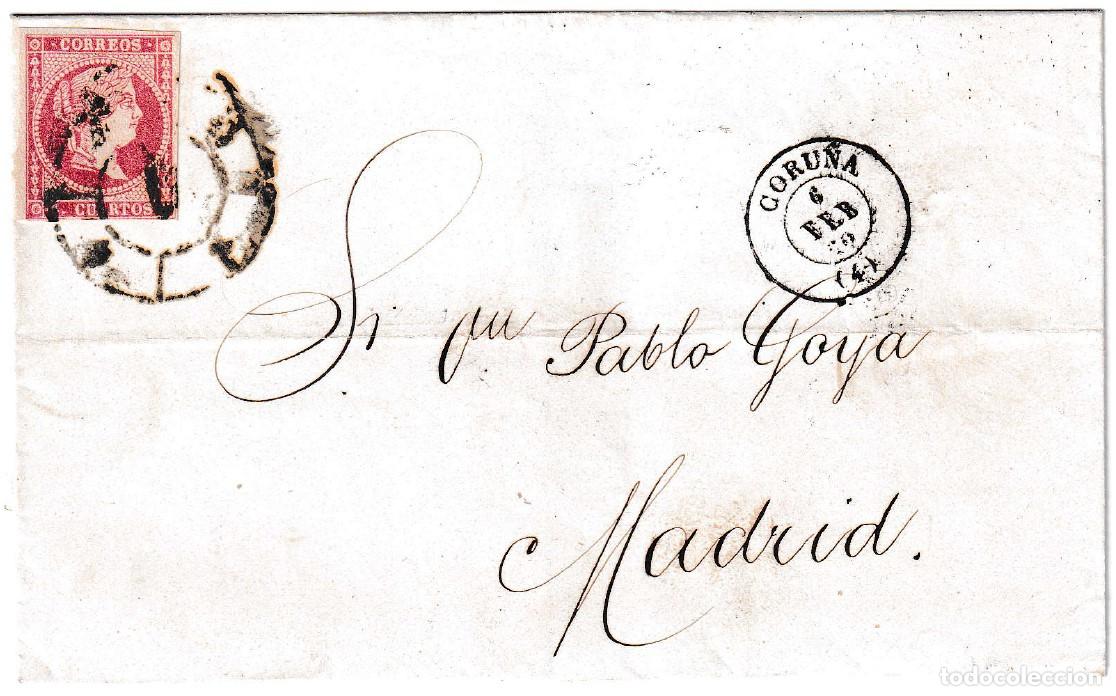 CORREOS
CUARTOS
CORUÑA
6
FEB
(4)
Pablo Goya
Madrid.
todocoleccion